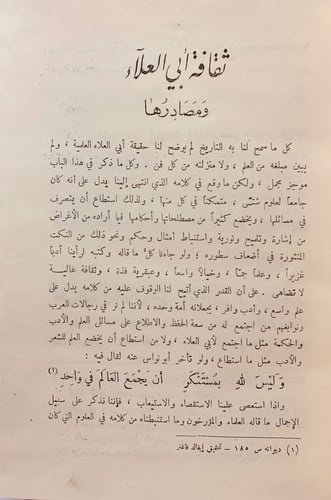 ثقافة أبي العلاء
ومصادرها
كل ما سمح لنا به التاريخ لم يوضح لنا حقيقة أبي العلاء العلمية ، ولم
يبين مبلغه من العلم ، ولا منزلته من كل فن . وكل ما ذكر في هذا الباب
موجز مجمل ، ولكن ما وقع في كلامه الذي انتهى إلينا يدل على أنه كان
جامعاً لعلوم شتى ، متمكناً في كل منها ، ولذلك استطاع أن يتصرف
في مسائلها ، ويخضع كثيراً من مصطلحاتها وأحكامها فيما أراده من الأغراض
من إشارة وتلميح وتورية واستنباط أمثال وحكم ونحو ذلك من النكت
المنثورة في أضعاف سطوره ، ولو جاءنا كل ما قاله وكتبه لرأينا أدباً
غزيراً ، وعلماً جماً ، وخيالاً واسعاً ، وعبقرية فذة ، وثقافة عالية
لا تضاهى . على أن القدر الذي أتيح لنا الوقوف عليه من كلامه يدل على
علم واسع ، وأدب وافر ، يجعلانه أمة وحده ، لأننا لم نر في رجالات العرب
ونوابغهم من اجتمع له من سعة الحفظ والاطلاع على مسائل العلم والأدب
والحكمة مثل ما اجتمع لأبي العلاء ، ولا من استطاع أن يخضع العلم للشعر
والأدب مثل ما استطاع ، ولو تأخر أبو نواس عنه لقال فيه :
وليس لله بمستنكر أن يجمع العالم في واحد (١)
واذا استعصى علينا الاستقصاء والاستيعاب ، فإننا نذكر على سبيل
الإجمال ما قاله العلماء والمؤرخون وما استنبطناه من كلامه في العلوم التي كان
(١) ديوانه ص ١٨٥ – تحقيق إيفالد فاغنر